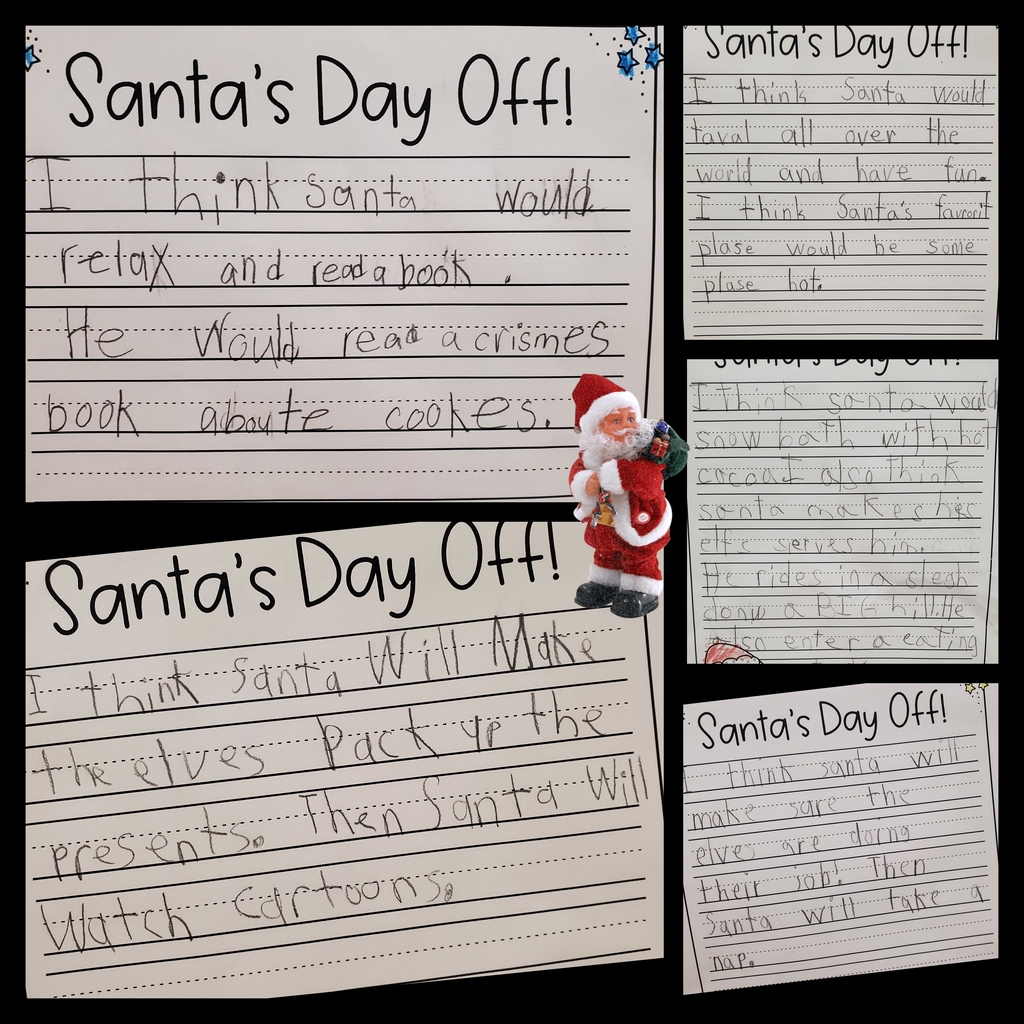 Santa's Day Off!
I think Santa would
relax and read a book.
He would read a crismes
book aboute cookes.
Santa's Day Off!
I think Santa Will Make
the elves Pack up the
presents. Then Santa Will
Watch Cartoons.
Santa's Day Off!
I think Santa would
taval all over the
world and have fun.
I think Santa's favorit
plase would be some
plase hot.
Santa's Day Off!
I think santa would
snow bath with hot
cocoa I also think
santa makes his
elfs serves him.
He rides in a slegh
donw a BIG hill. He
also enter a eating
Santa's Day Off!
I think santa will
make sare the
elves are doing
their job! Then
Santa will take a
nap.